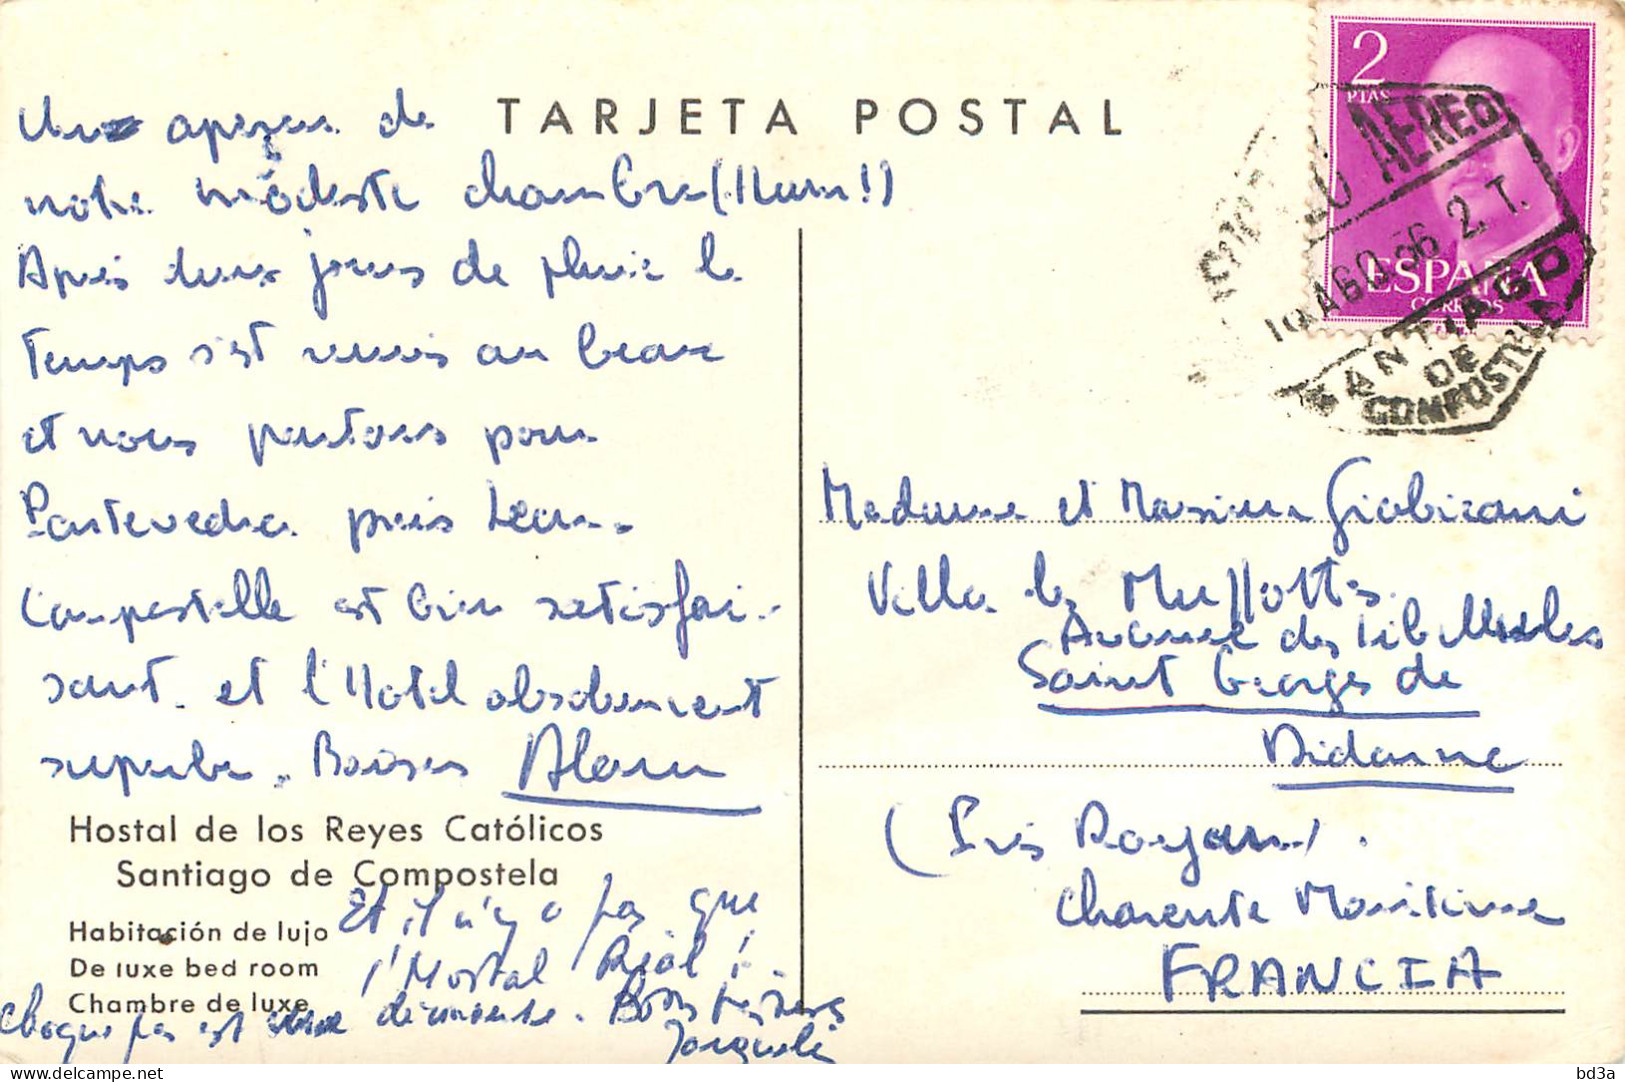 TARJETA POSTAL
Un aperçu de
notre modeste chambre (Hum!)
Après deux jours de pluie le
temps s'est remis au beau
et nous partons pour
Pontevedra puis Leon.
Compostelle est bien satisfai-
sant et l'Hotel absolument
superbe. Baisers Alain
Hostal de los Reyes Católicos
Santiago de Compostela
Habitación de lujo
De luxe bed room
Chambre de luxe
Et il n'y a pas que
l'Hostal Real!
Chaque pas est une découverte. Bons baisers
2
PTAS
ESPAÑA
CORREOS
CORREO AEREO
10 AGO 56 2 T.
SANTIAGO
DE
COMPOSTELA
Madame et Monsieur Giabicani
Villa les
Avenue des
Saint Georges de
Didonne
(Près Royan).
Charente Maritime
FRANCIA
Delcampe.net
bd3a